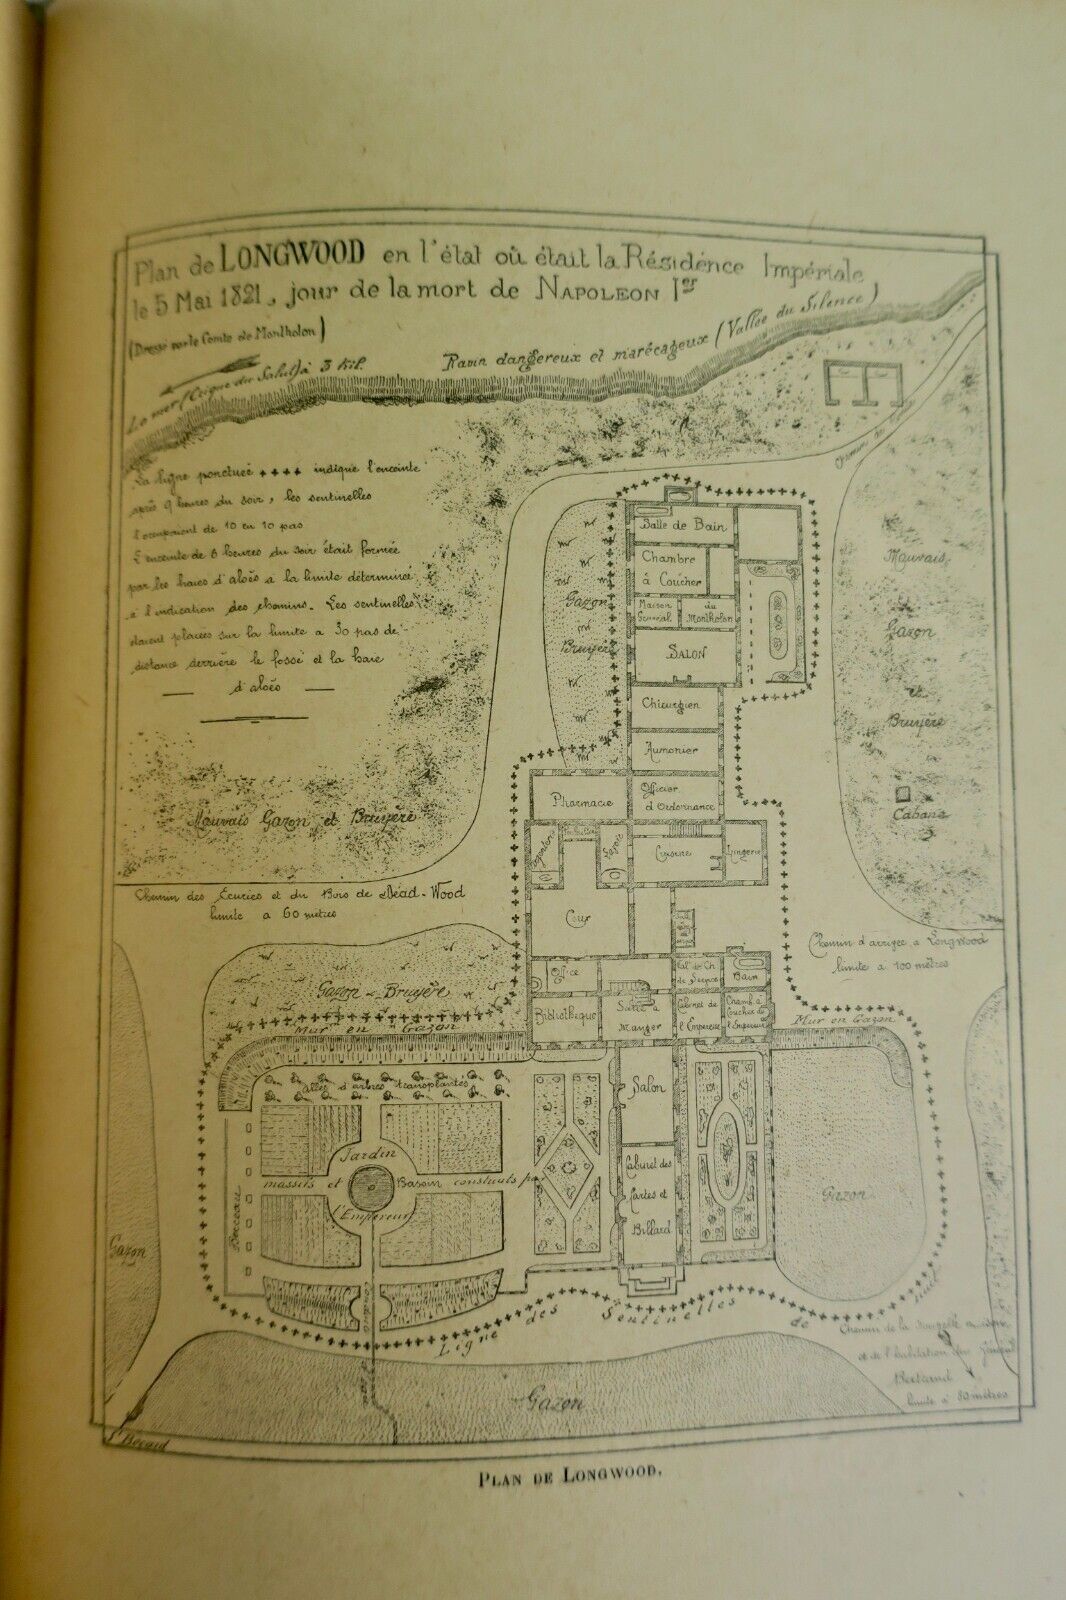 Plan de LONGWOOD en l'état où était la Résidence Impériale
le 5 Mai 1821, jour de la mort de NAPOLEON Ier
(Dressé par le Comte de Montholon)
La mer (Ligne du Salut) à 3 Kil.
Ravin dangereux et marécageux (Vallée du Silence)
La ligne ponctuée ++++ indique l'enceinte
après 9 heures du soir, les sentinelles
l'occupaient de 10 en 10 pas
L'enceinte de 6 heures du soir était formée
par les haies d'aloës a la limite déterminée
a l'indication des chemins. Les sentinelles
étaient placées sur la limite a 30 pas de
distance derrière le fossé et la haie
d'aloës
Mauvais Gazon et Bruyère
Chemin des Ecuries et du Bois de Dead-Wood
limite a 60 mètres
Gazon
Bruyère
Salle de Bain
Chambre
à Coucher
Maison du
Général Montholon
SALON
Chirurgien
Aumonier
Pharmacie
Officier
d'Ordonnance
Cuisine
Lingerie
Cour
Mauvais
Gazon
et
Bruyère
Cabane
Chemin d'arrivée a Longwood
limite a 100 mètres
Office
Bain
Bibliothèque
Salle a
Manger
Cabinet de
l'Empereur
Chamb. a
coucher de
l'Empereur
Gazon - Bruyère
Mur en Gazon
Mur en Gazon
Allée d'arbres transplantés
Jardin
massifs et Bassin construits par
l'Empereur
Berceau
Salon
Cabinet des
Cartes et
Billard
Gazon
Gazon
Ligne des Sentinelles de
Chemin de la
et de l'habitation du Général
Bertrand
limite à 80 mètres
Gazon
PLAN DE LONGWOOD.